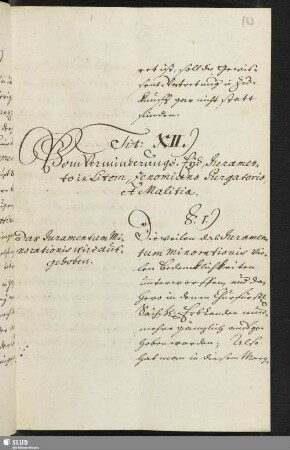 ret ist, soll des Gewis-
sens Vertretung in Zu-
kunfft gar nicht statt
finden.
Tit: XII.
Vom Verminderungs-Eyd, Juramen-
to in Litem, Zenoniano Purgatorio
et Malitiæ.
§. 1.
Das Juramentum Mi-
norationis wird auf-
gehoben.
Dieweilen das Juramen-
tum minorationis vie-
len Bedencklichkeiten
unterworffen, und da-
hero in denen Churfürstl.
Sächß. Erb Landen nun-
mehro gäntzlich aufge-
hoben worden; Also
hat man in diesem Marg-
SLUB